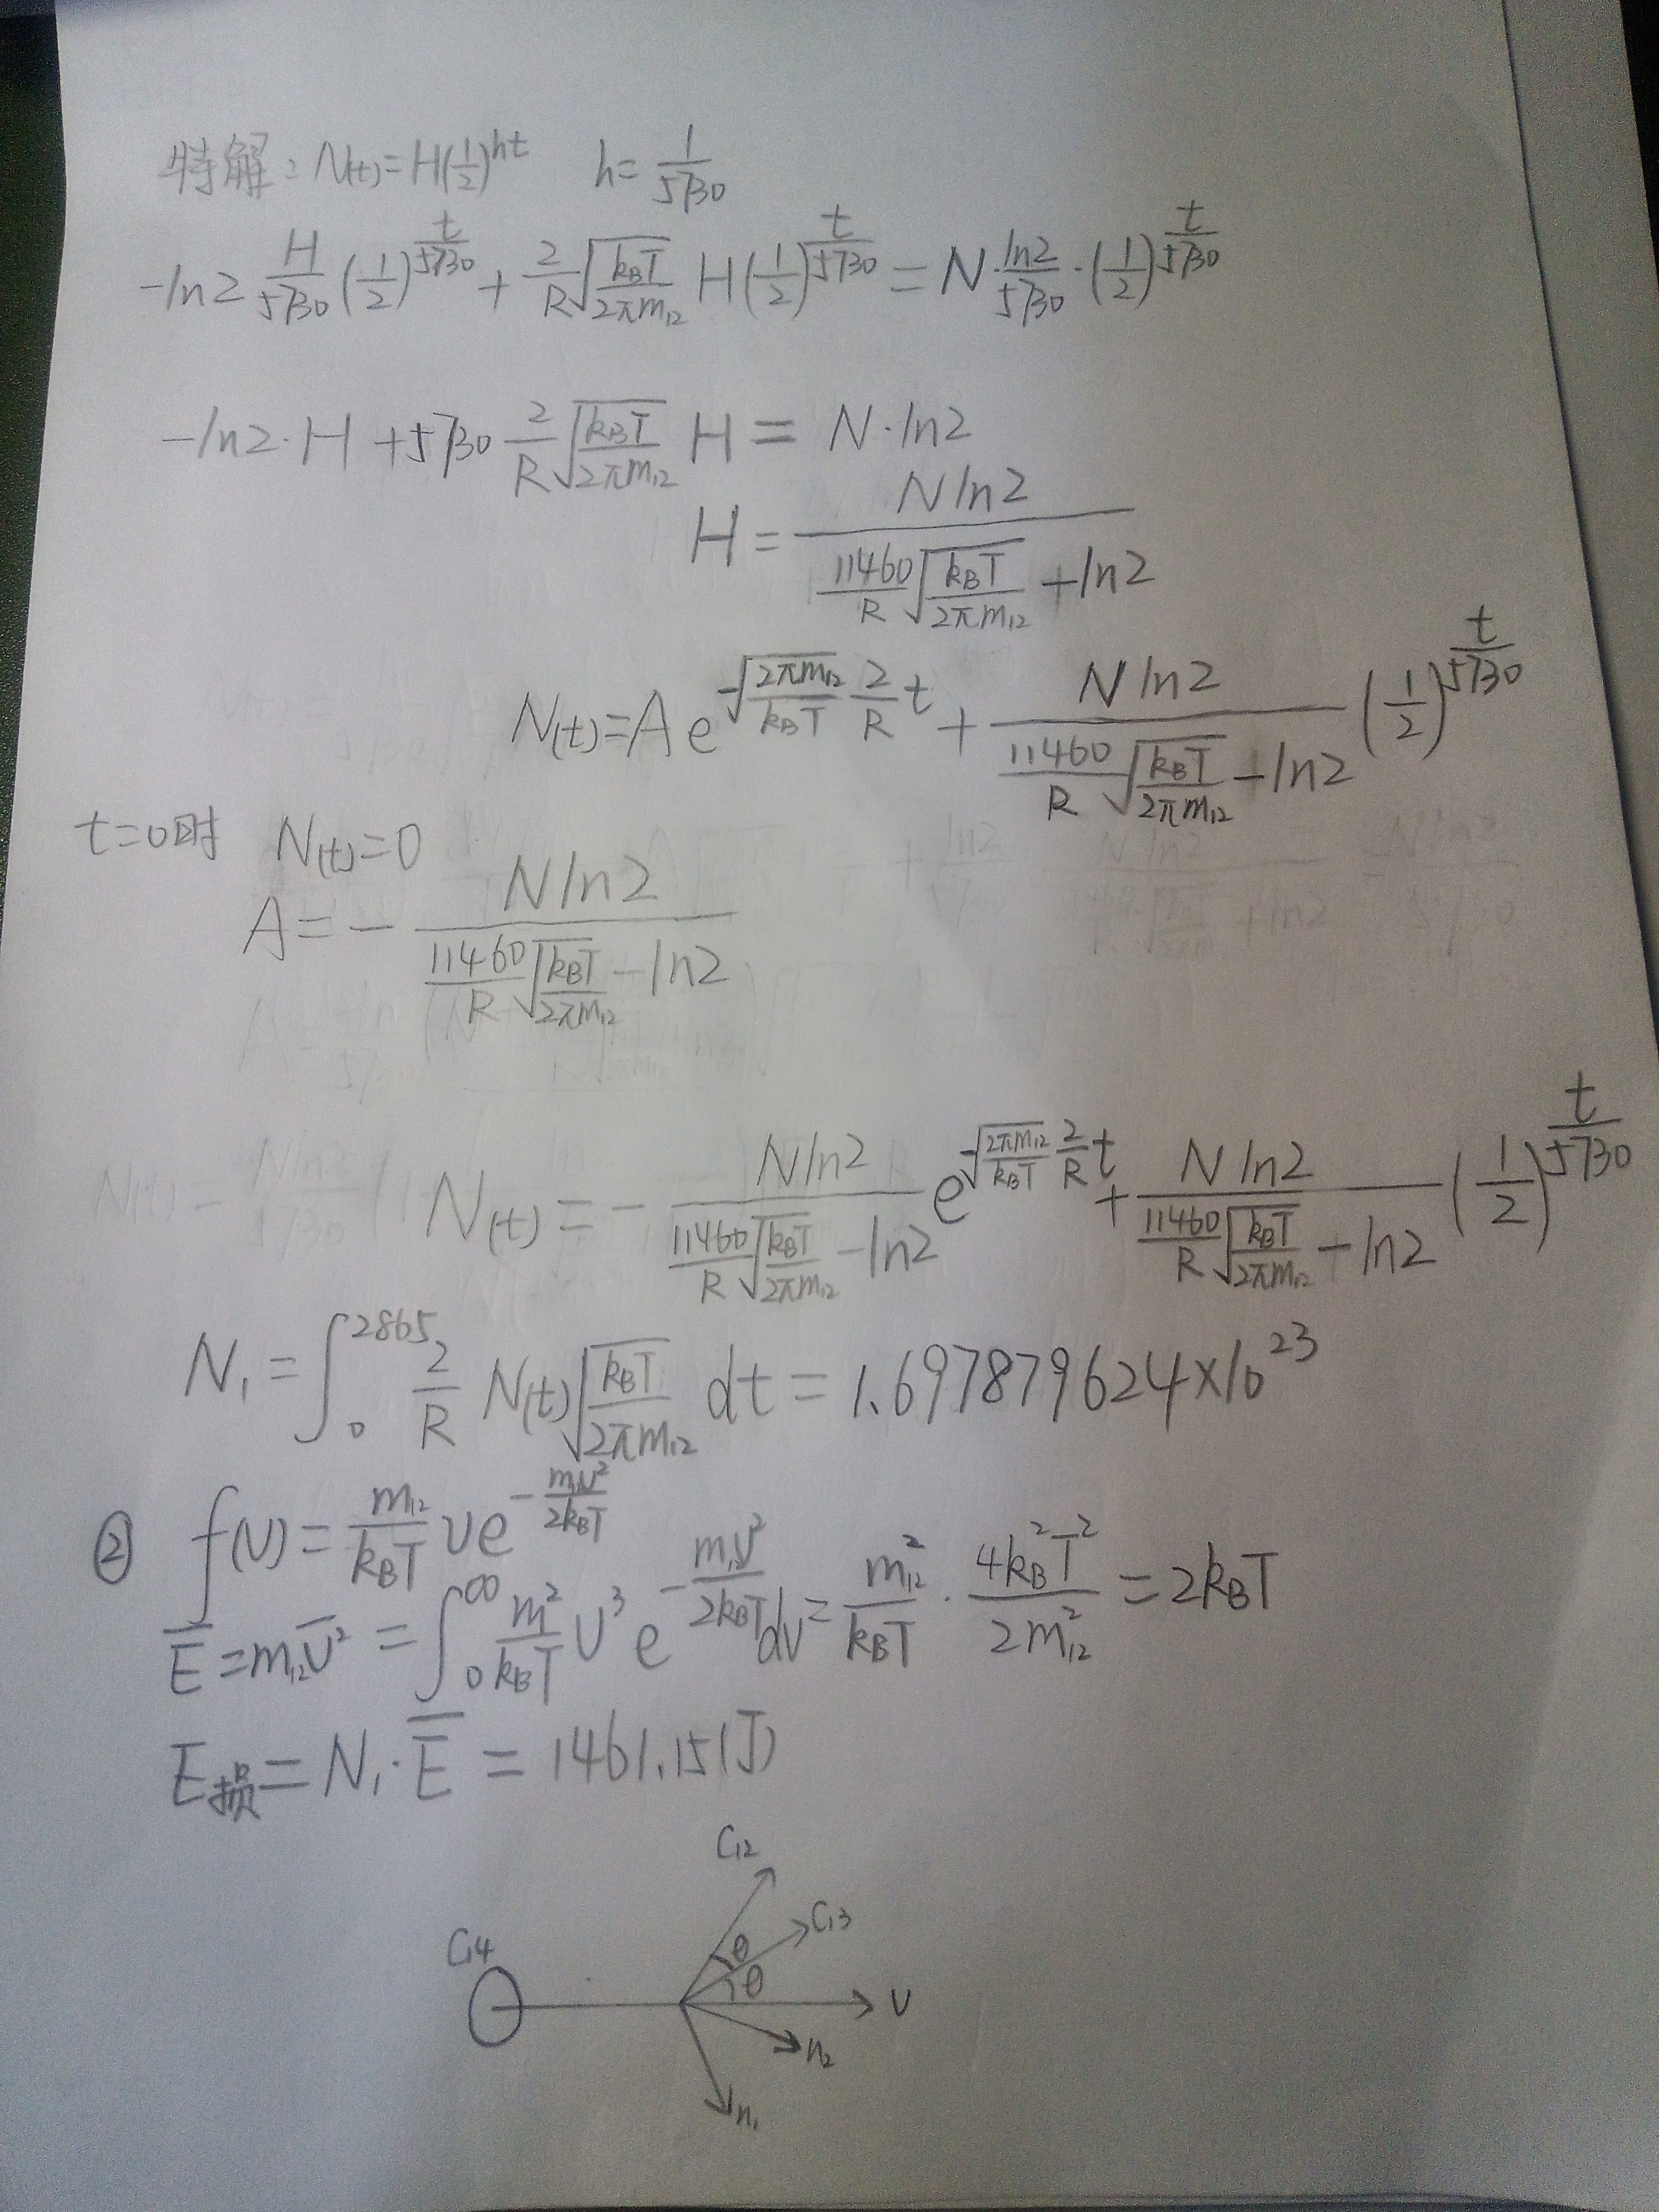 特解：N(t)=H(1/2)^{ht}  h=1/5730
-ln2 H/5730 (1/2)^{t/5730} + 2/R √(k_BT/2πm₁₂) H(1/2)^{t/5730} = N·ln2/5730·(1/2)^{t/5730}
-ln2·H+5730 2/R √(k_BT/2πm₁₂) H = N·ln2
H = Nln2/(11460/R √(k_BT/2πm₁₂) +ln2)
N(t)=A e^{-√(2πm₁₂/k_BT) 2/R t} + Nln2/(11460/R √(k_BT/2πm₁₂) -ln2) (1/2)^{t/5730}
t=0时 N(t)=0
A=- Nln2/(11460/R √(k_BT/2πm₁₂) -ln2)
N(t) = - Nln2/(11460/R √(k_BT/2πm₁₂) -ln2) e^{-√(2πm₁₂/k_BT) 2/R t} + Nln2/(11460/R √(k_BT/2πm₁₂) -ln2) (1/2)^{t/5730}
N₁ = ∫₀^{2865} 2/R N(t) √(k_BT/2πm₁₂) dt = 1.697879624×10²³
② f(v) = m₁₂/k_BT v e^{-m₁₂v²/2k_BT}
E̅ = m₁₂v̅² = ∫₀^∞ m²/k_BT v³ e^{-m₁₂v²/2k_BT} dv = m₁₂²/k_BT · 4k_B²T²/2m₁₂² = 2k_BT
E损 = N₁·E̅ = 1461.15(J)
C₁₂
C₁₃
C₁₄
θ
θ
v
n₂
n₁